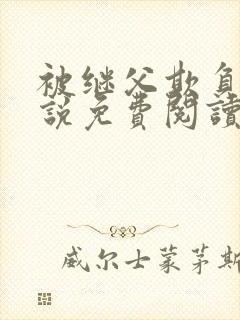 被继父欺负
說免費閱讀
威尔士蒙茅斯